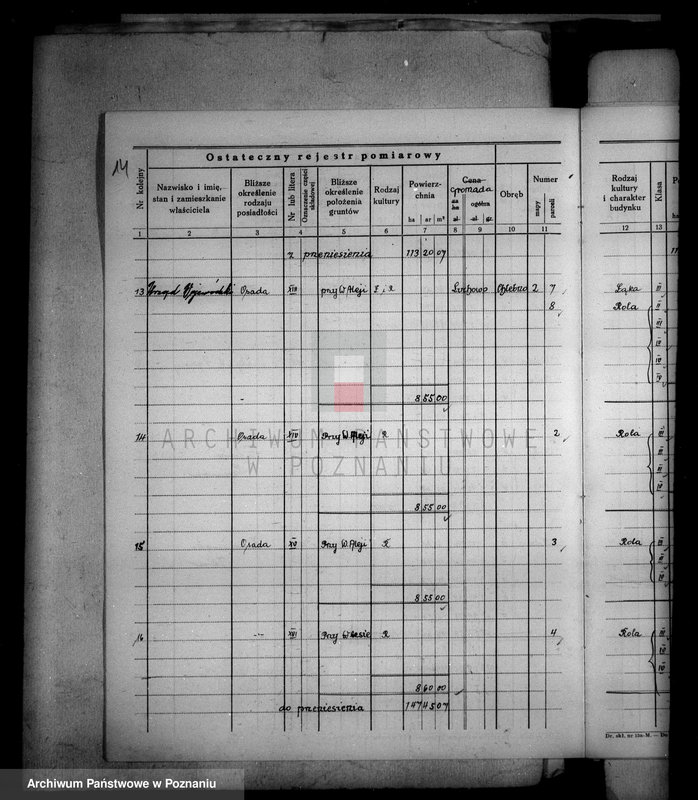 14
Ostateczny rejestr pomiarowy
Nr kolejny
Nazwisko i imię, stan i zamieszkanie właściciela
Bliższe określenie rodzaju posiadłości
Nr lub litera
Oznaczenie części składowej
Bliższe określenie położenia gruntów
Rodzaj kultury
Powierzchnia
ha ar m²
Cena
gromada
za ha ogólna
zł. zł. gr.
Obręb
Numer
mapy parceli
Rodzaj kultury i charakter budynku
Klasa
1 2 3 4 5 6 7 8 9 10 11 12 13
z przeniesienia 113 20 07
13 Urząd Wojewódzki Osada XIII przy W. Aleji Ł i R Obręb 2 7 Łąka III
8 Rola II
III
IV
IV
IV
8 55 00
14 Osada XIV Przy W. Aleji R 2 Rola III
II
III
IV
8 55 00
15 Osada XV Przy W. Aleji R 3 Rola III
II
IV
8 55 00
16 XVI Przy W lesie R 4 Rola III
IV
IV
8 60 00
do przeniesienia 147 45 07
Dr. skł. nr 12a-M. — Do
ARCHIWUM PAŃSTWOWE
W POZNANIU
Archiwum Państwowe w Poznaniu